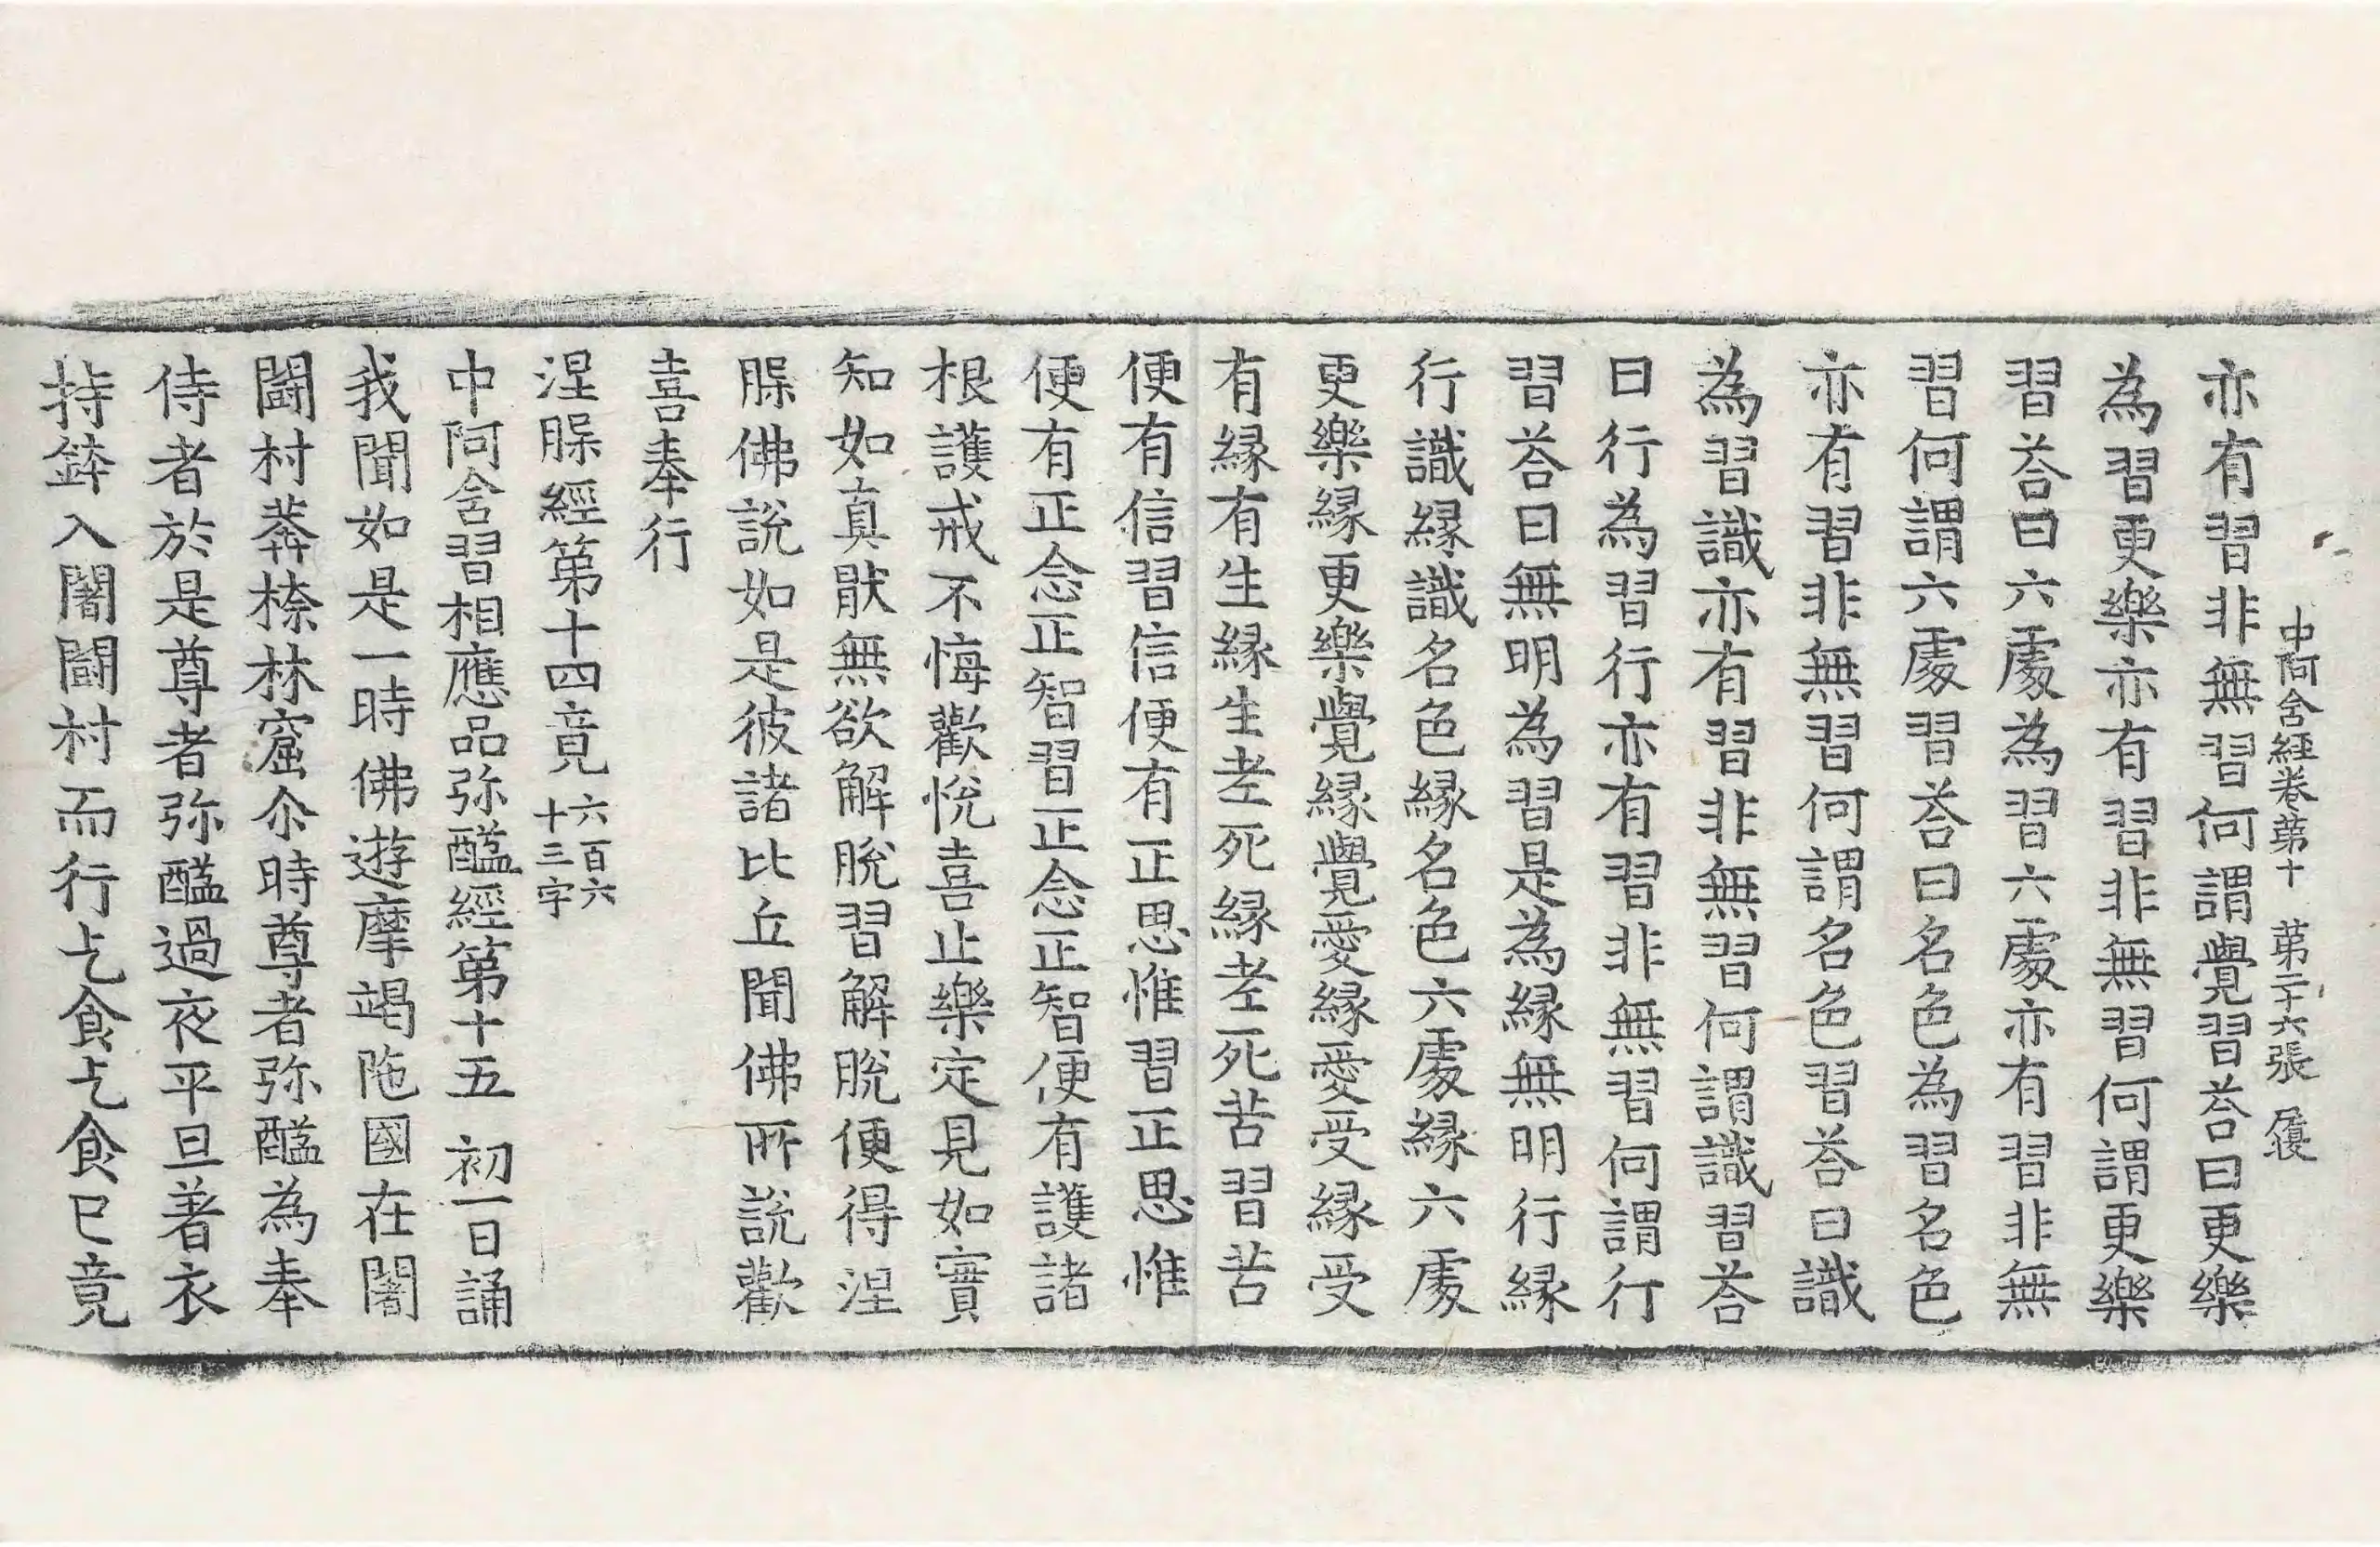 中阿含經卷第十　第二十六張　履
亦有習非無習何謂覺習荅曰更樂
為習更樂亦有習非無習何謂更樂
習荅曰六處為習六處亦有習非無
習何謂六處習荅曰名色為習名色
亦有習非無習何謂名色習荅曰識
為習識亦有習非無習何謂識習荅
曰行為習行亦有習非無習何謂行
習荅曰無明為習是為緣無明行緣
行識緣識名色緣名色六處緣六處
更樂緣更樂覺緣覺愛緣愛受緣受
有緣有生緣生老死緣老死苦習苦
便有信習信便有正思惟習正思惟
便有正念正智習正念正智便有護諸
根護戒不悔歡悅喜止樂定見如實
知如真猒無欲解脫習解脫便得涅
槃佛說如是彼諸比丘聞佛所說歡
喜奉行
涅槃經第十四竟六百六十三字
中阿含習相應品弥醯經第十五　初一日誦
我聞如是一時佛遊摩竭陁國在闍
鬪村莽㮈林窟尒時尊者弥醯為奉
侍者於是尊者弥醯過夜平旦著衣
持鉢入闍鬪村而行乞食乞食已竟